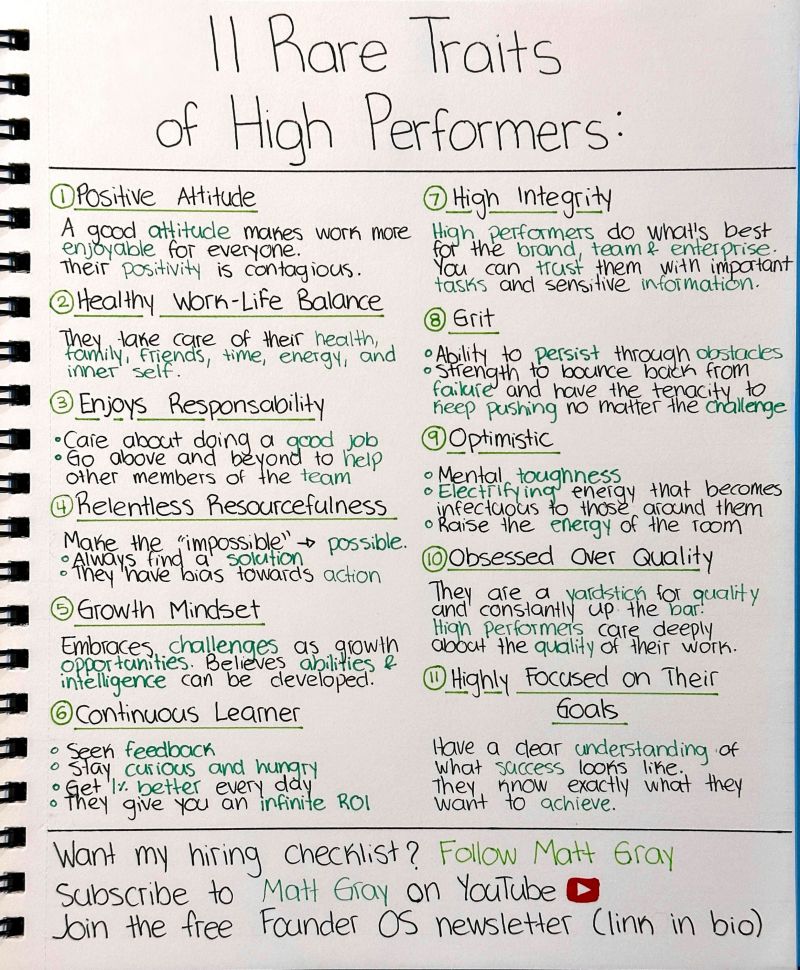 11 Rare Traits
of High Performers:
① Positive Attitude
A good attitude makes work more
enjoyable for everyone.
Their positivity is contagious.
② Healthy Work-Life Balance
They take care of their health,
family, friends, time, energy, and
inner self.
③ Enjoys Responsability
• Care about doing a good job
• Go above and beyond to help
other members of the team
④ Relentless Resourcefulness
Make the "impossible" → possible.
• Always find a solution
• They have bias towards action
⑤ Growth Mindset
Embraces challenges as growth
opportunities. Believes abilities &
intelligence can be developed.
⑥ Continuous Learner
• Seek feedback
• Stay curious and hungry
• Get 1% better every day
• They give you an infinite ROI
⑦ High Integrity
High performers do what's best
for the brand, team & enterprise.
You can trust them with important
tasks and sensitive information.
⑧ Grit
• Ability to persist through obstacles
• Strength to bounce back from
failure and have the tenacity to
keep pushing no matter the challenge
⑨ Optimistic
• Mental toughness
• Electrifying energy that becomes
infectuous to those around them
• Raise the energy of the room
⑩ Obsessed Over Quality
They are a yardstick for quality
and constantly up the bar!
High Performers care deeply
about the quality of their work.
⑪ Highly Focused on Their
Goals
Have a clear understanding of
what success looks like.
They know exactly what they
want to achieve.
Want my hiring checklist? Follow Matt Gray
Subscribe to Matt Gray on YouTube
Join the free Founder OS newsletter (link in bio)